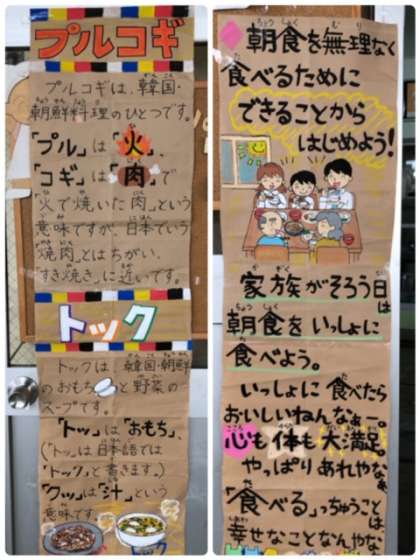 プルコギ
プルコギは、韓国・
朝鮮料理のひとつです。
「プル」は「火」、
「コギ」は「肉」で
「火で焼いた肉」という
意味ですが、日本でいう
焼肉とはちがい、
「すき焼き」に近いです。
トック
トックは、韓国・朝鮮
のおもちと野菜の
スープです。
「トッ」は「おもち」、
(「トッ」は日本語では
「トック」と書きます。)
「クッ」は「汁」という
意味です。
朝食を無理なく
食べるために
できることから
はじめよう!
家族がそろう日
は
朝食をいっしょに
食べよう。
いっしょに食べたら
おいしいねんなぁー。
心も体も大満足。
やっぱりあれやなぁ
「食べる」っちゅうことは
幸せなことなんやな